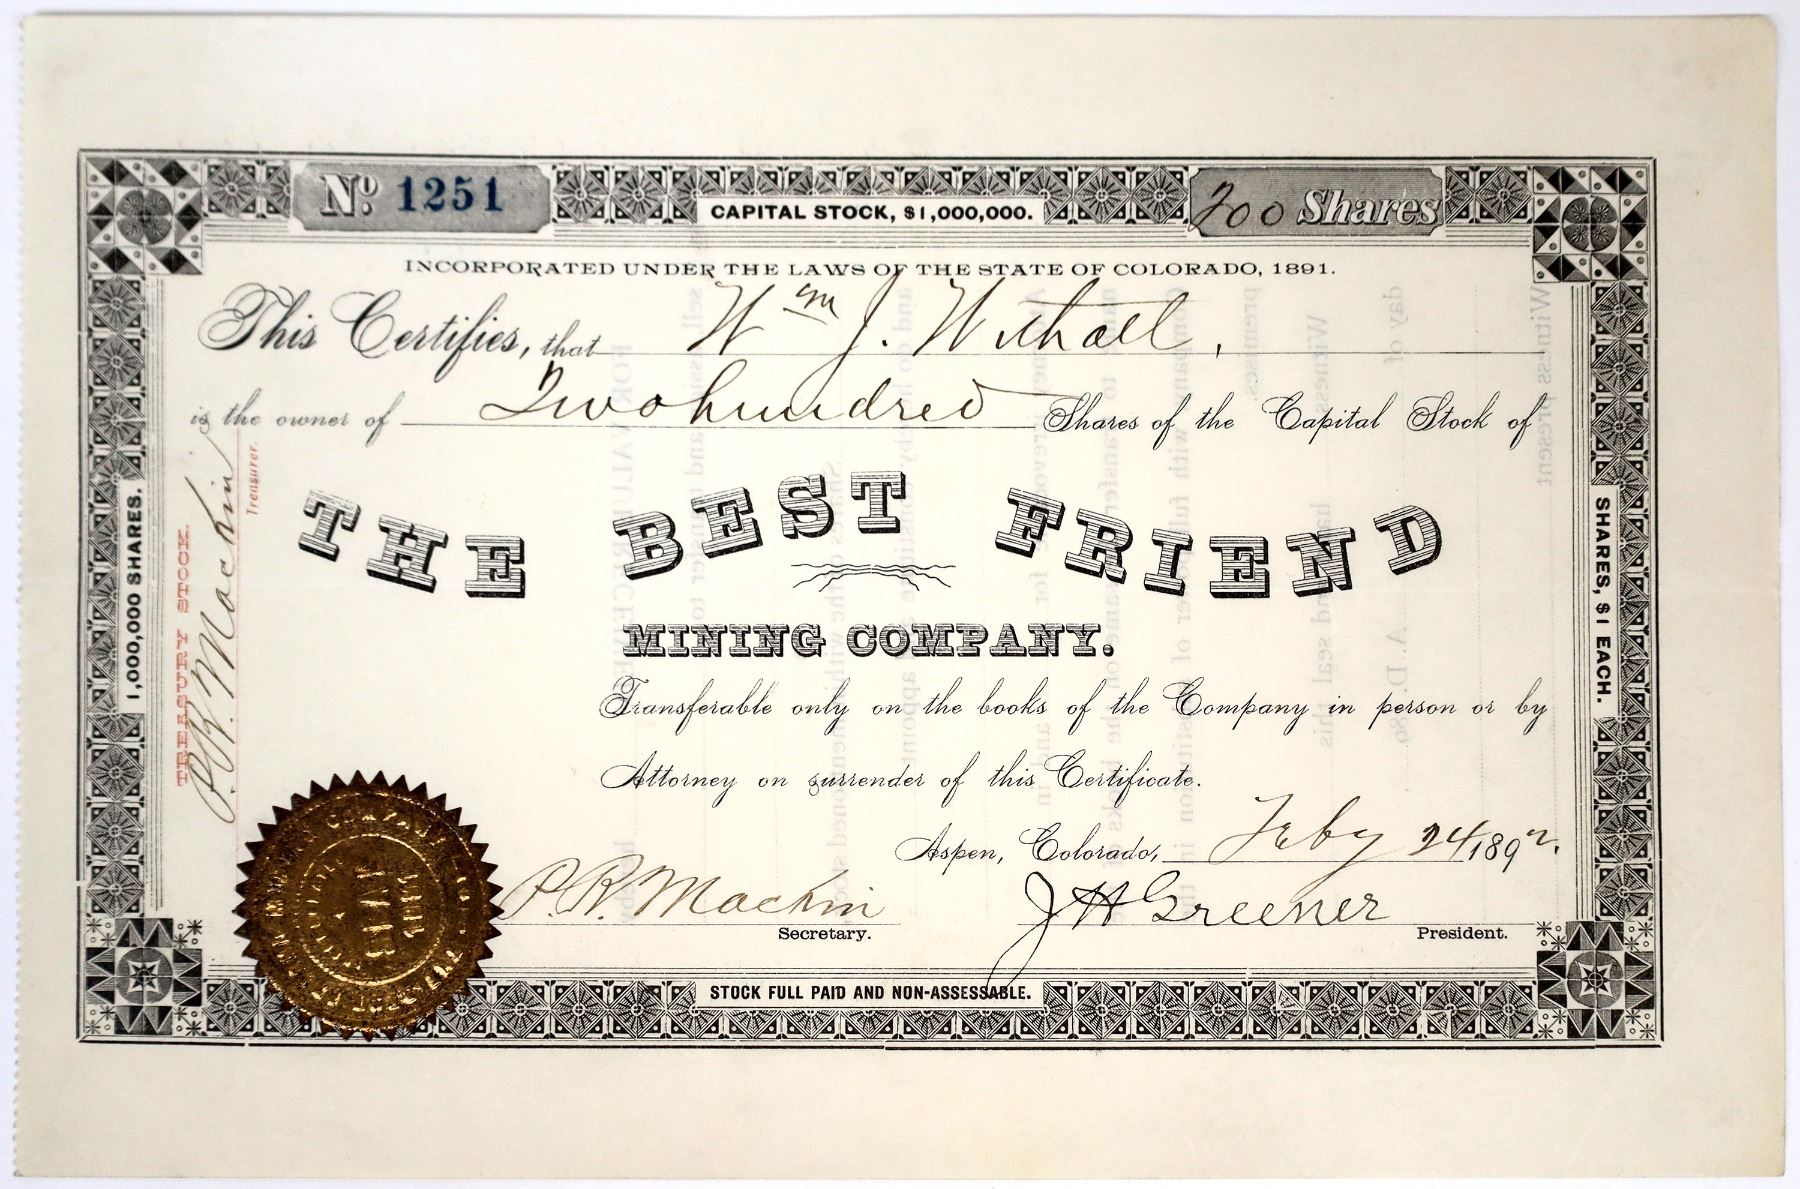 No. 1251
CAPITAL STOCK, $1,000,000.
200 Shares
INCORPORATED UNDER THE LAWS OF THE STATE OF COLORADO, 1891.
This Certifies, that Wm J. Withall,
is the owner of Two hundred Shares of the Capital Stock of
THE BEST FRIEND
MINING COMPANY.
Transferable only on the books of the Company in person or by
Attorney on surrender of this Certificate.
Aspen, Colorado, Feby 24 1892.
P. R. Mackin
Secretary.
J H Greener
President.
STOCK FULL PAID AND NON-ASSESSABLE.
1,000,000 SHARES.
TREASURY STOCK.
P. R. Mackin
Treasurer.
SHARES, $1 EACH.